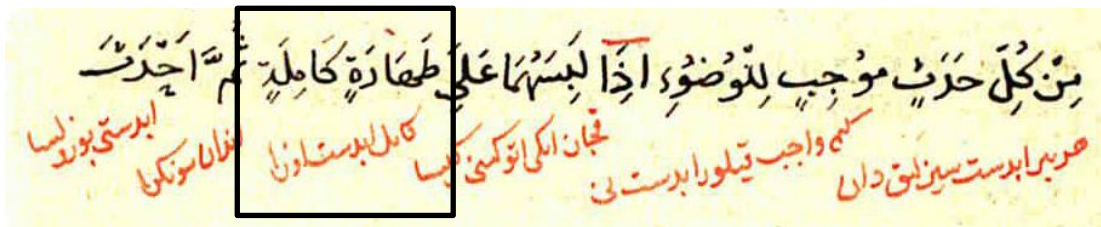 مِنْ كُلِّ حَدَثٍ مُوجِبٍ لِلْوُضُوْءِ اِذَا لَبِسَهُمَا عَلَى طَهَارَةٍ كَامِلَةٍ ثُمَّ اَحْدَثَ
هر بر ابدست سيزلق دان واجب قيلور ابدست نى قچان ايكى اتوكنى كيسا كامل ابدست اوزا اندان سونكرا ابدستى بوزولسا